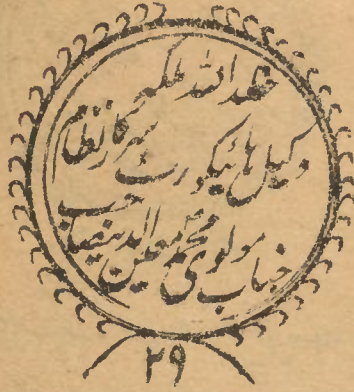 خلد اللہ ملکہ
وکیل ہائیکورٹ سرکار نظام
جناب مولوی محمد معین الدین صاحب
۲۹